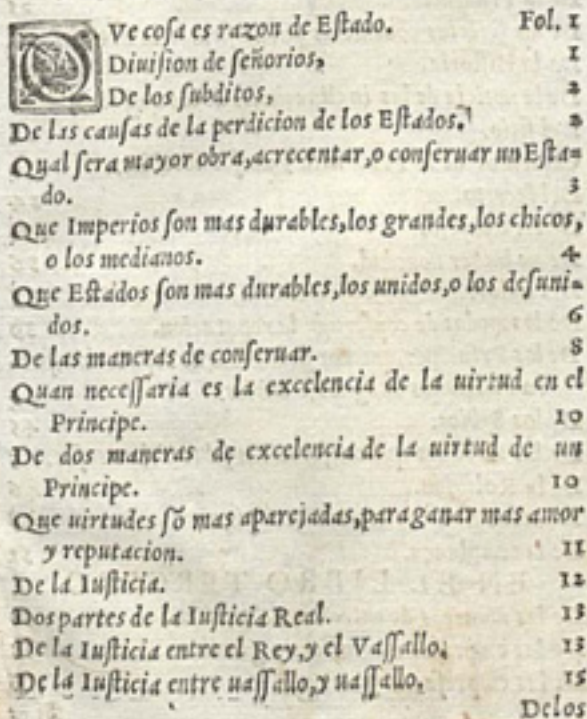 QVe cosa es razon de Estado. Fol. 1
Diuision de señorios, 1
De los subditos, 2
De las causas de la perdicion de los Estados. 2
Qual sera mayor obra, acrecentar, o conseruar un Esta-
do. 3
Que Imperios son mas durables, los grandes, los chicos,
o los medianos. 4
Que Estados son mas durables, los unidos, o los desuni-
dos. 6
De las maneras de conseruar. 8
Quan necessaria es la excelencia de la uirtud en el
Principe. 10
De dos maneras de excelencia de la uirtud de un
Principe. 10
Que uirtudes sõ mas aparejadas, para ganar mas amor
y reputacion. 11
De la Iusticia. 12
Dos partes de la Iusticia Real. 13
De la Iusticia entre el Rey, y el Vassallo. 13
De la Iusticia entre uassallo, y uassallo. 15
Delos